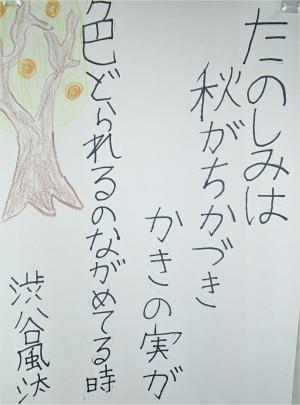 たのしみは
秋がちかづき
かきの実が
色どられるのながめてる時
渋谷風汰